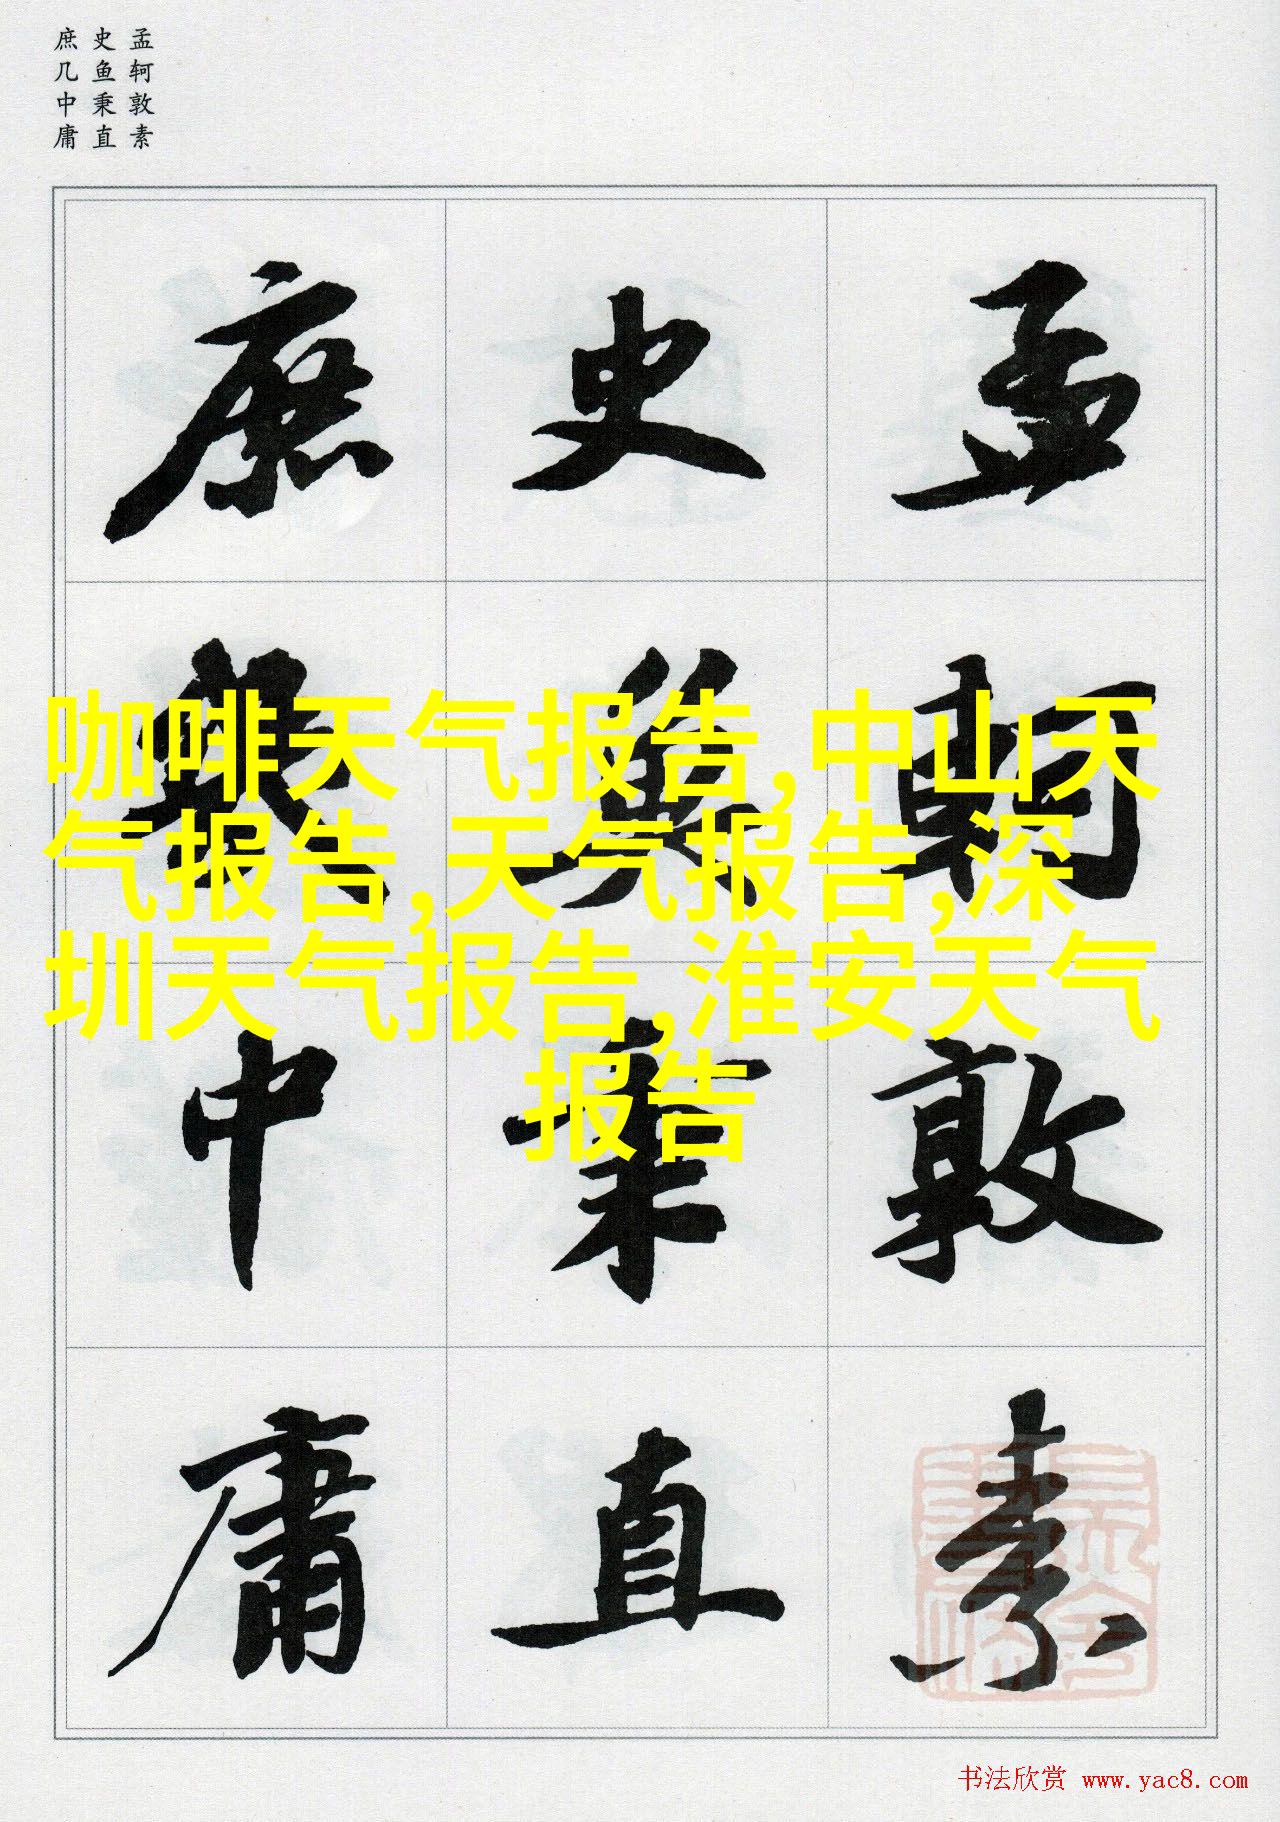 孟轲敦素
史鱼秉直
庶几中庸
孟軻敦素
史魚秉直
庶幾中庸
咖啡天气报告,中山天
气报告,天气报告,深
圳天气报告,淮安天气
报告
书法欣赏 www.yac8.com